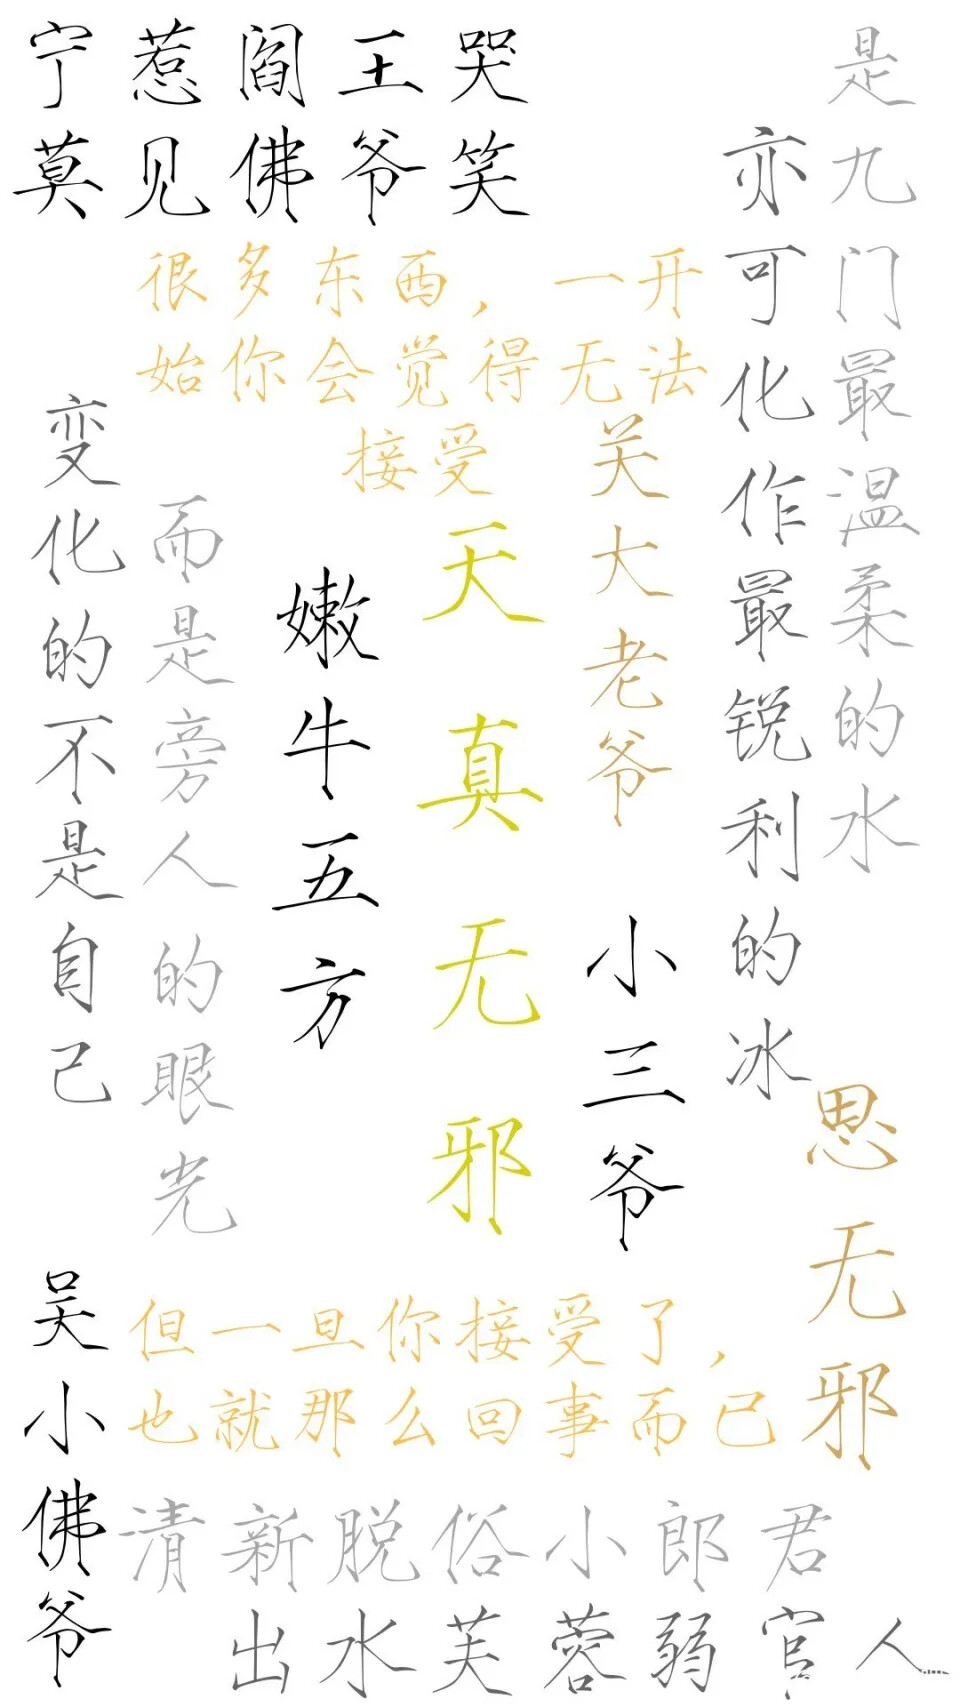 宁惹阎王哭
莫见佛爷笑
是九门最温柔的水
亦可化作最锐利的冰
很多东西，一开
始你会觉得无法
接受
关大老爷
天真无邪
嫩牛五方
小三爷
变化的不是自己
而是旁人的眼光
思无邪
但一旦你接受了，
也就那么回事而已
吴小佛爷
清新脱俗小郎君
出水芙蓉弱官人